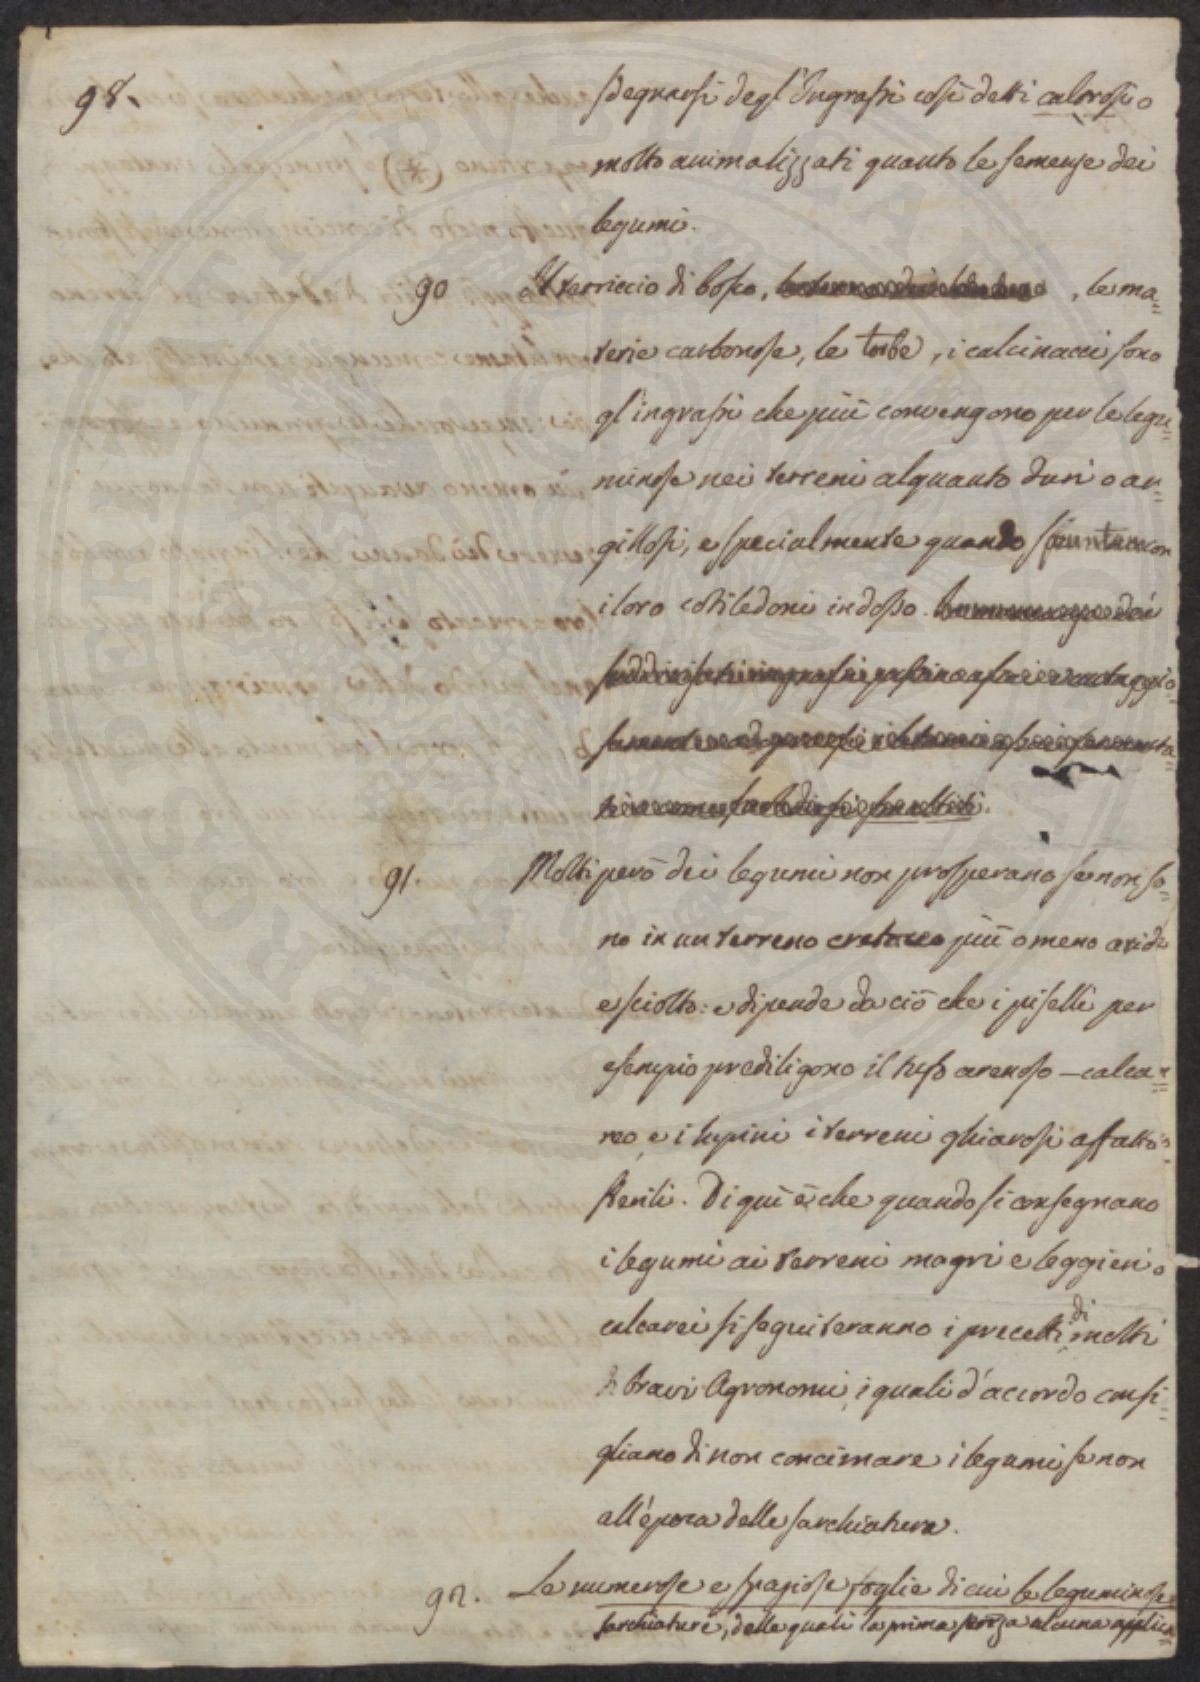 98.
sdegnarsi degl'Ingrassi così detti calorosi o
molto animalizzati quanto le semenze dei
legumi.
90 Il terriccio di bosco, , le ma=
terie carbonose, le torbe, i calcinacci sono
gl'ingrassi che più convengono per le legu=
minose nei terreni alquanto duri o ar=
gillosi, e specialmente quando spuntano con
i loro cotiledoni indosso.
91. Molti però dei legumi non prosperano se non so=
no in un terreno cretaceo più o meno arido
e sciolto: e dipende da ciò che i piselli per
esempio prediligono il tufo arenoso-calca=
reo, e i lupini i terreni ghiarosi affatto
sterili. Di qui è che quando si consegnano
i legumi ai terreni magri e leggieri o
calcarei si seguiteranno i precetti di molti
bravi Agronomi, i quali d'accordo consi=
gliano di non concimare i legumi se non
all'época delle sarchiature.
92. Le numerose e spaziose foglie di cui le leguminose
sarchiature, delle quali la prima senza alcuna applica=